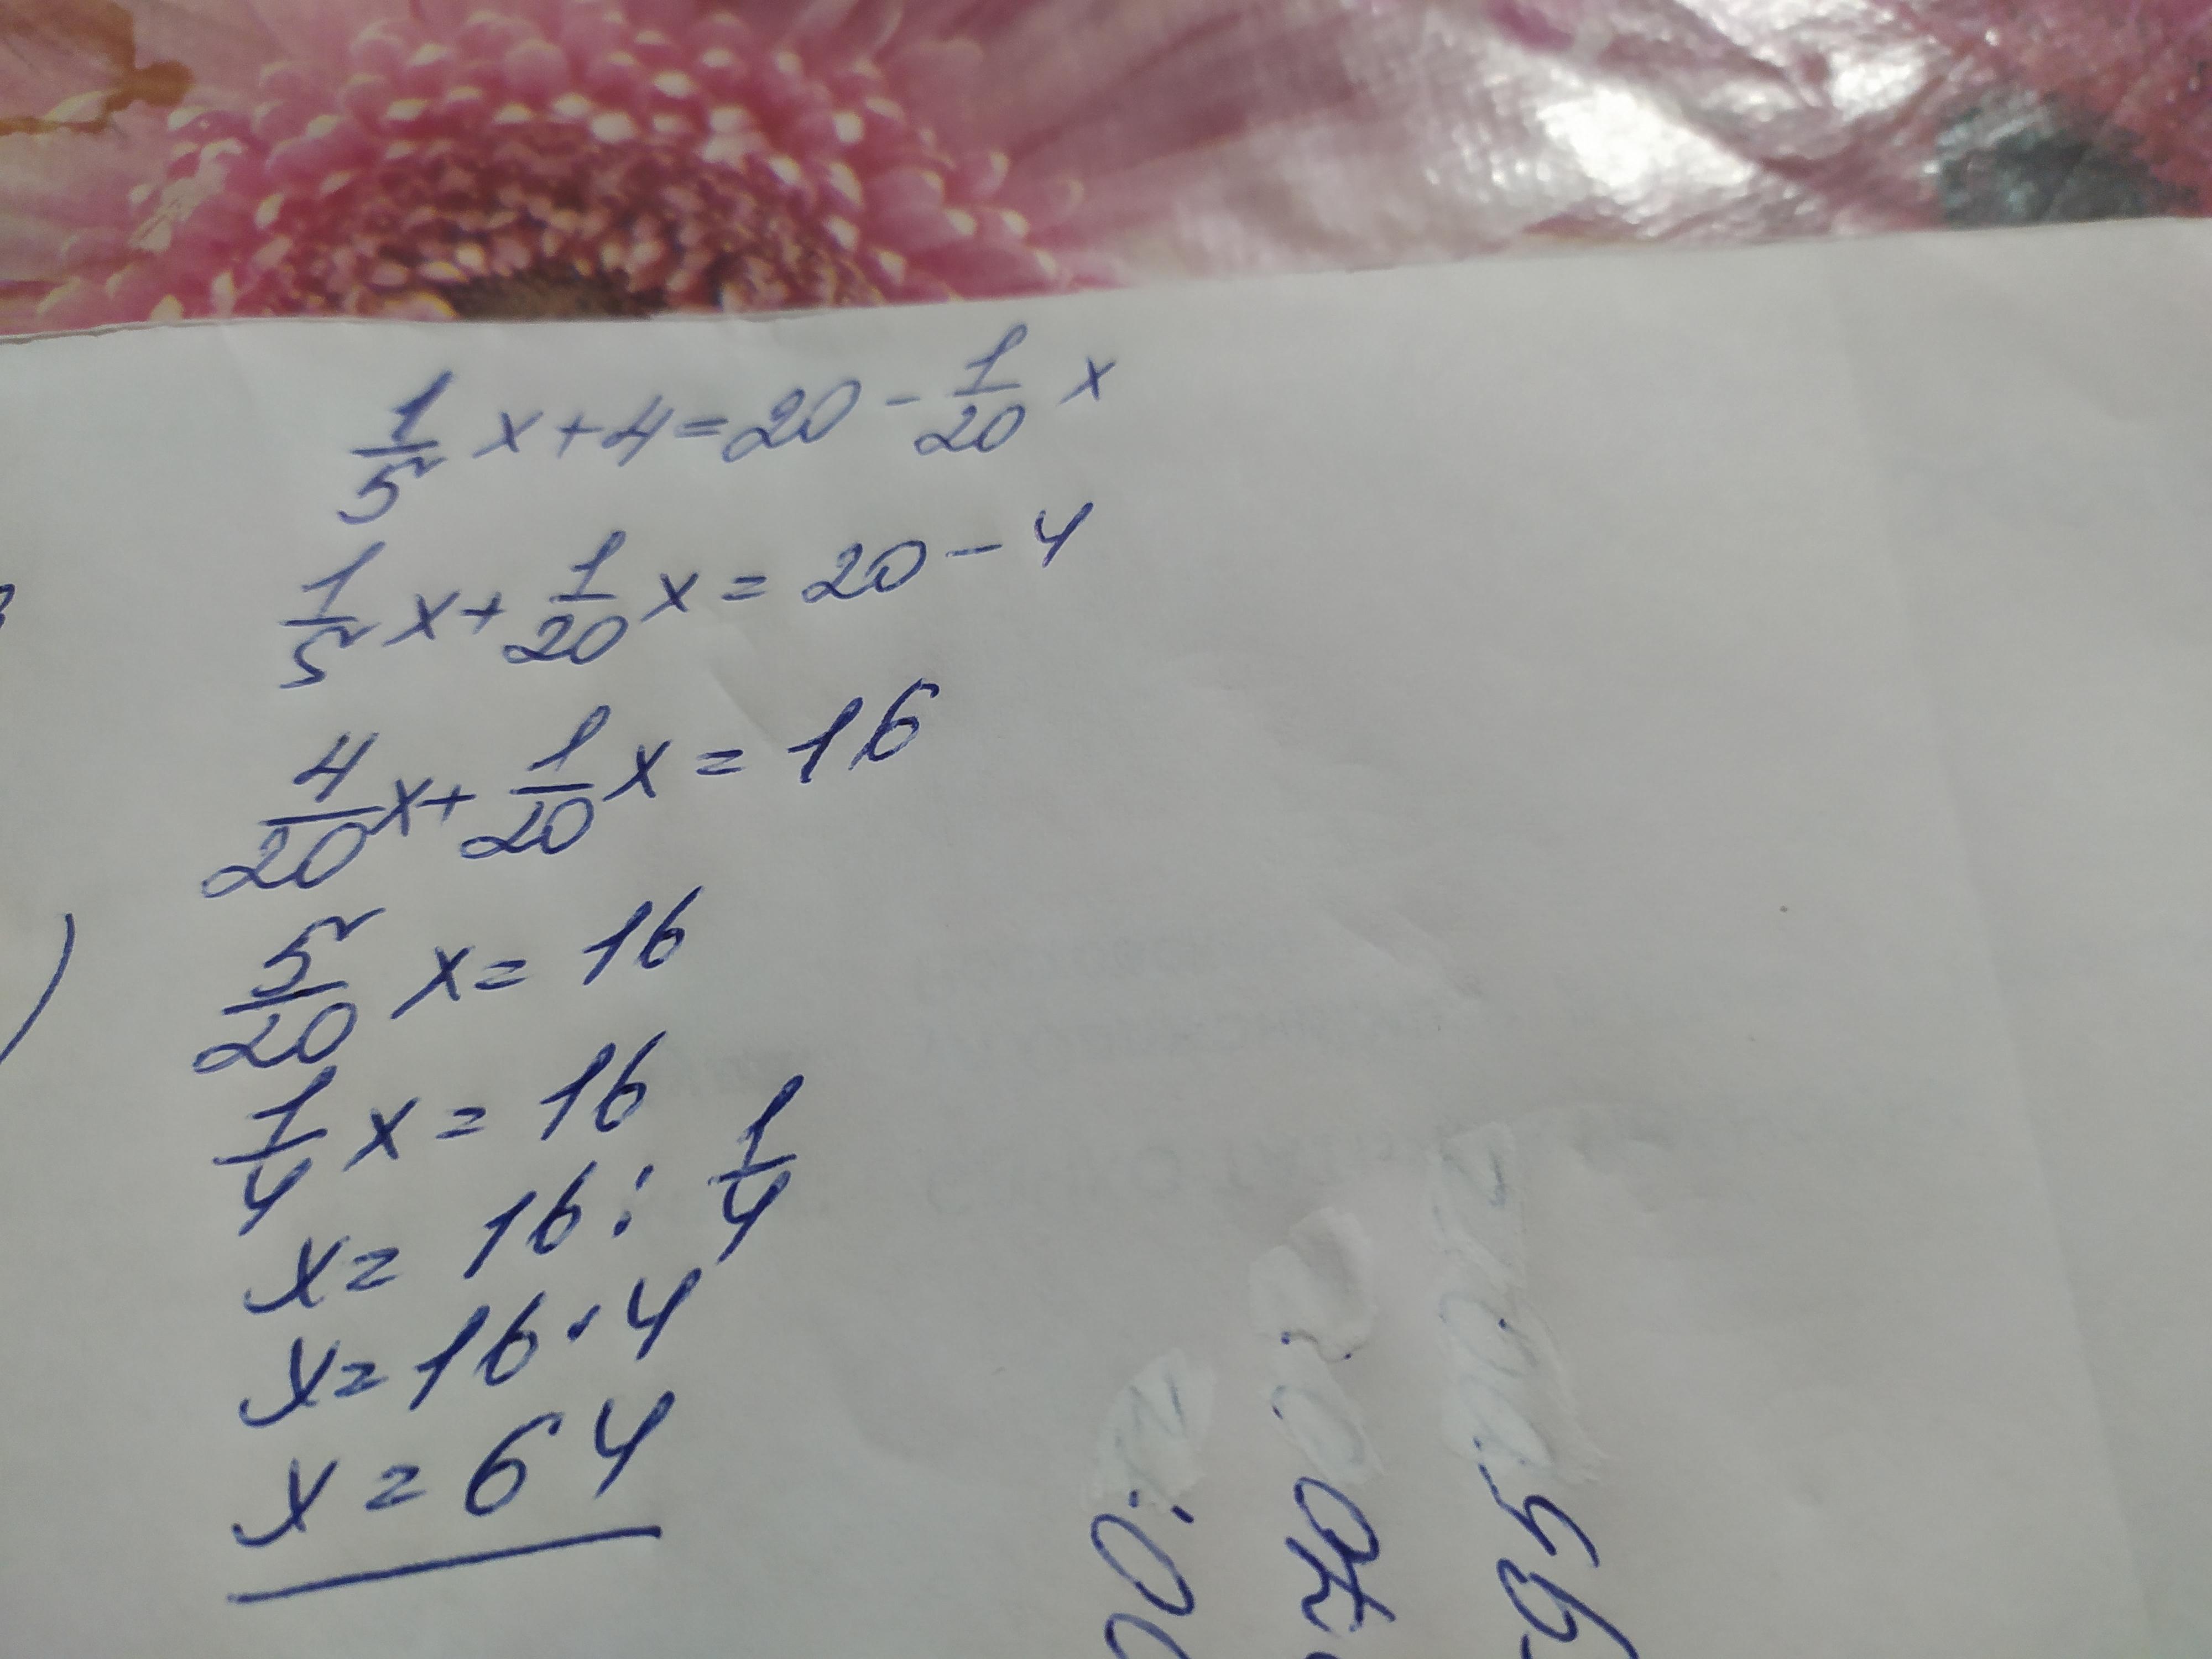 1/5 x + 4 = 20 - 1/20 x
1/5 x + 1/20 x = 20 - 4
4/20 x + 1/20 x = 16
5/20 x = 16
1/4 x = 16
x = 16 : 1/4
x = 16 · 4
x = 64